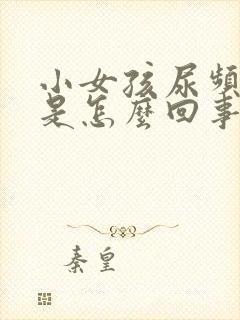 小女孩尿頻
是怎麼回事
秦皇